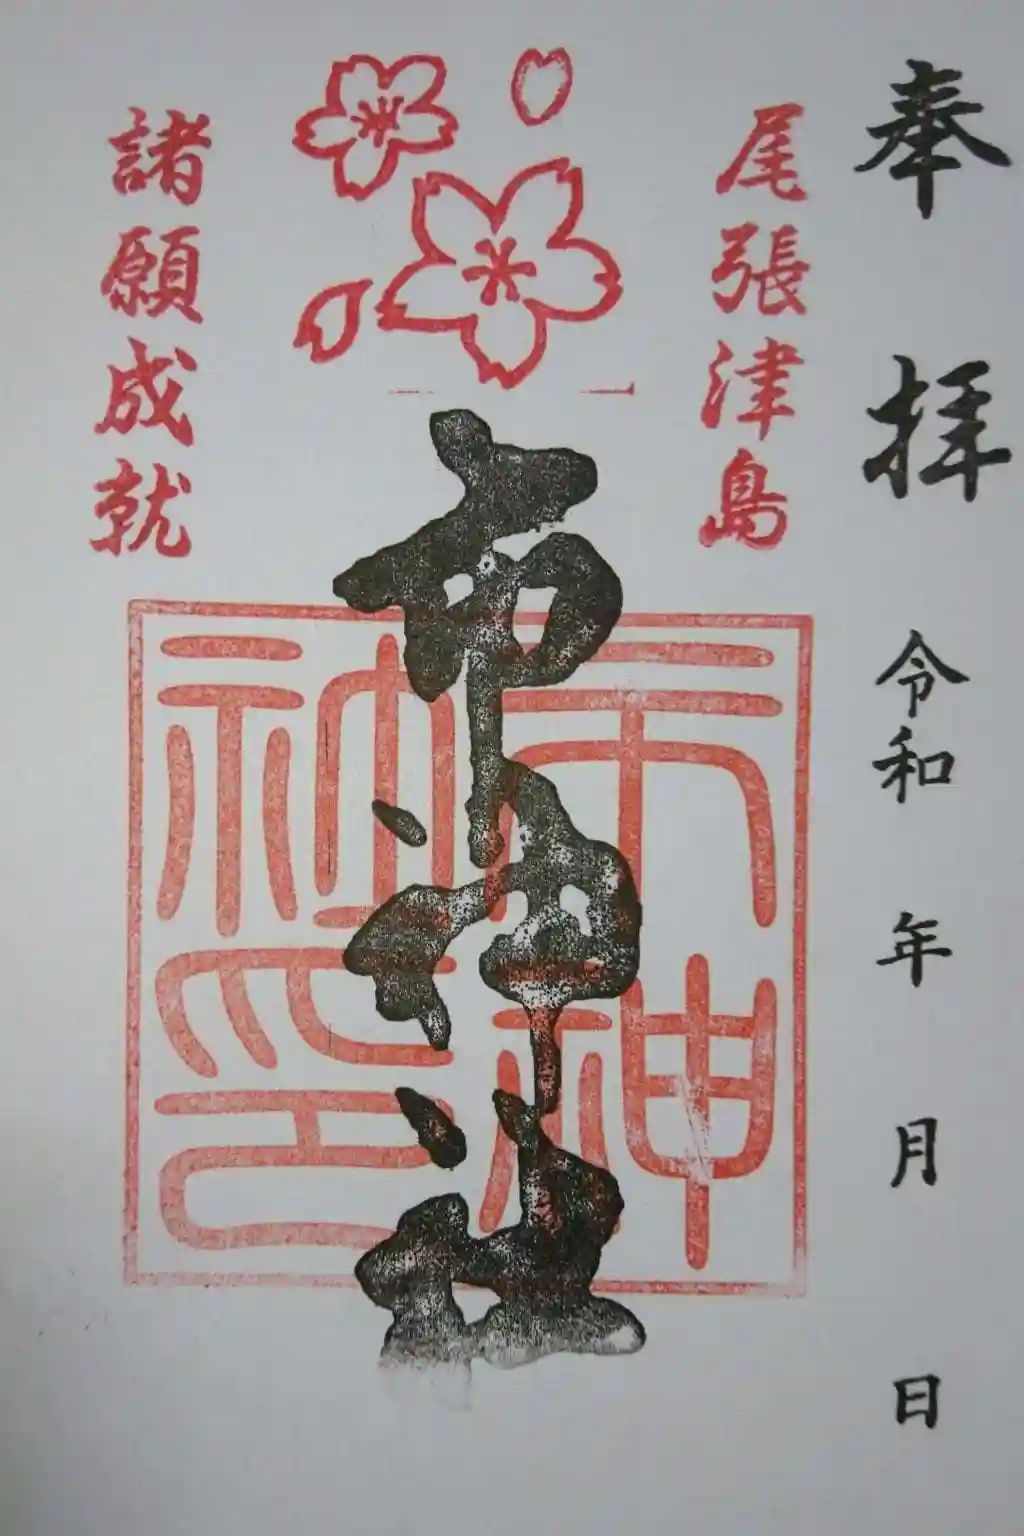 奉拝
令和 年 月 日
尾張津島
市神社
市神社印
諸願成就